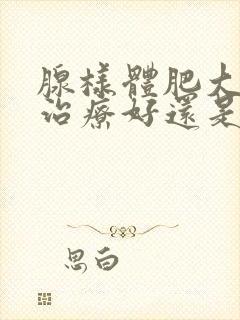 腺樣體肥大
治療好還是
思白